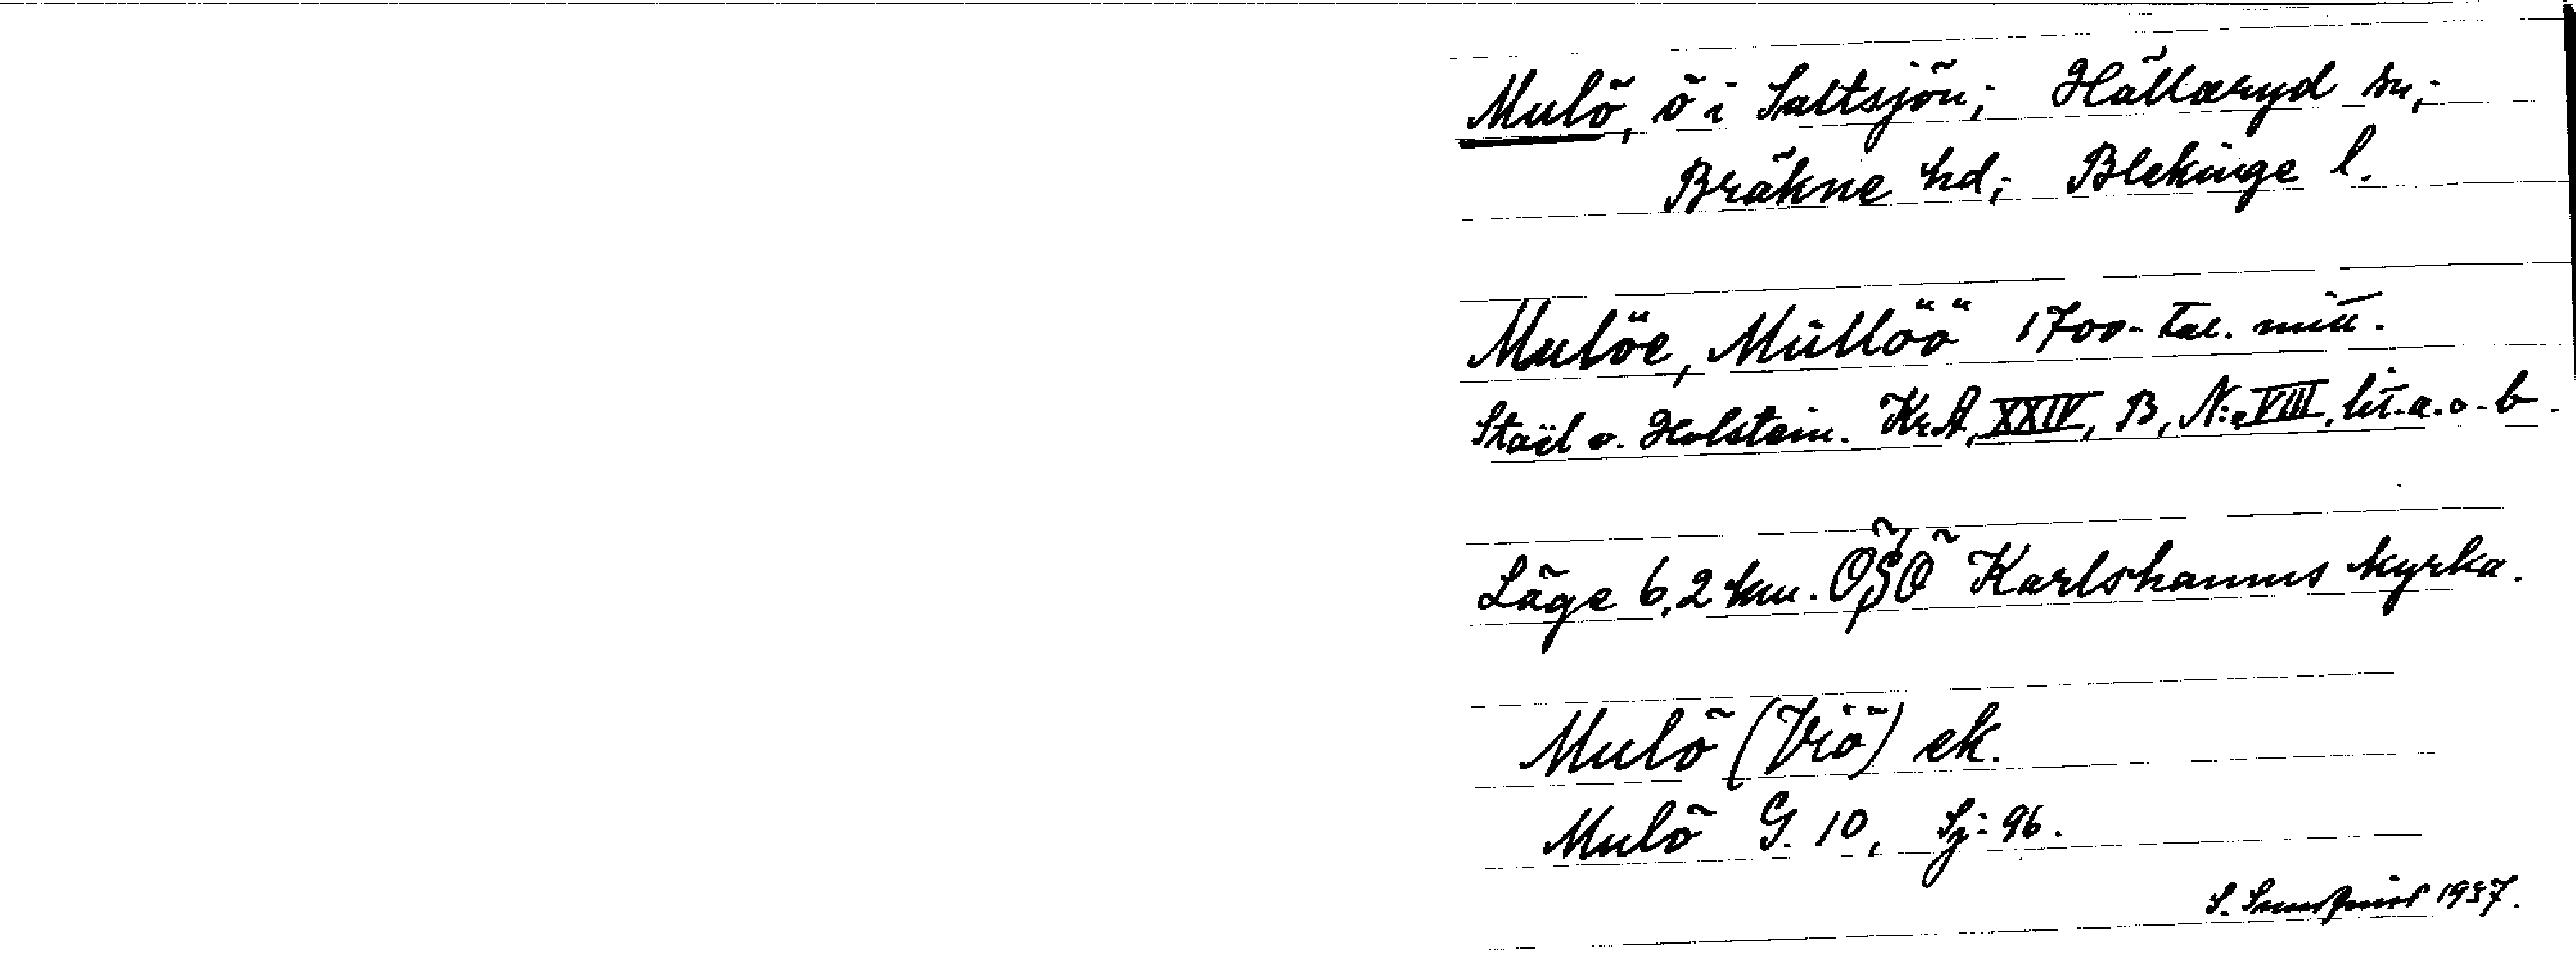 Mulö, ö i Saltsjön; Hällaryd sn;
Bräkne hd; Blekinge l.
Mulöe, Müllöö 1700-tal. mitt.
Staël v. Holstein. KrA, XXIV, B, N:o VIII, lit. a. o. b.
Läge 6,2 km. ÖSÖ Karlshamns kyrka.
Mulö (Viö) ek.
Mulö G. 10, Sj: 96.
S. 1937.